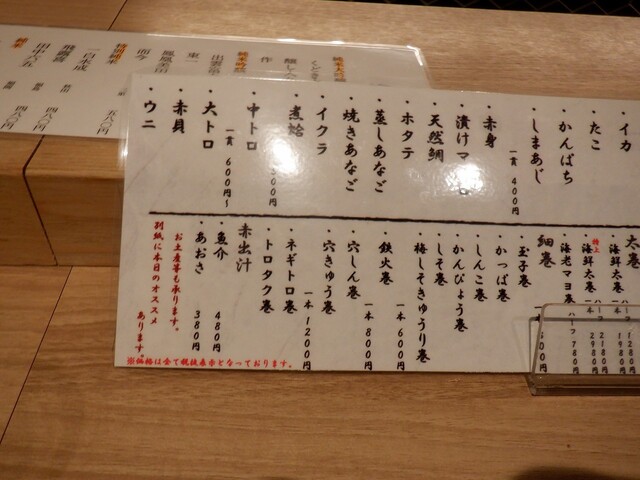 ・イカ
・たこ
・かんぱち
・しまあじ
・赤身
一貫 400円
・漬けマ
・天然鯛
・ホタテ
・蒸しあなご
・焼きあなご
・イクラ
・煮蛤
・中トロ
・大トロ
一貫 600円〜
・赤貝
・ウニ
太巻
・海鮮太巻
特上
・海鮮太巻
・海老マヨ巻
ハーフ 780円
細巻
・玉子巻
・かっぱ巻
・しんこ巻
・かんぴょう巻
・しそ巻
・梅しそきゅうり巻
一本 600円
・鉄火巻
一本 800円
・穴しん巻
・穴きゅう巻
一本 1200円
・ネギトロ巻
・トロタク巻
赤出汁
・魚介 480円
・あおさ 380円
お土産等も承ります。
別紙に本日のオススメ
あります。
※価格は全て税抜表示となっております。
特別純米
一白水成
五八〇円
飛露喜
四八〇円
田中六五
四八〇円
而今
東一
作